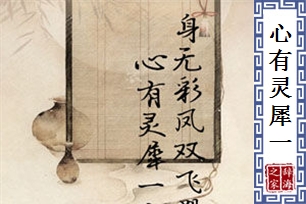 身无彩凤双飞翼
心有灵犀一
心有灵犀一
辞海
之家